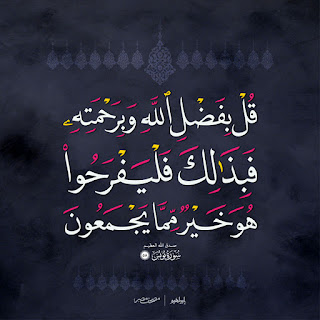 قُلْ بِفَضْلِ ٱللَّهِ وَبِرَحْمَتِهِۦ
فَبِذَٰلِكَ فَلْيَفْرَحُوا۟
هُوَ خَيْرٌ مِّمَّا يَجْمَعُونَ
صدق الله العظيم
سُورَةُ يُونُسَ